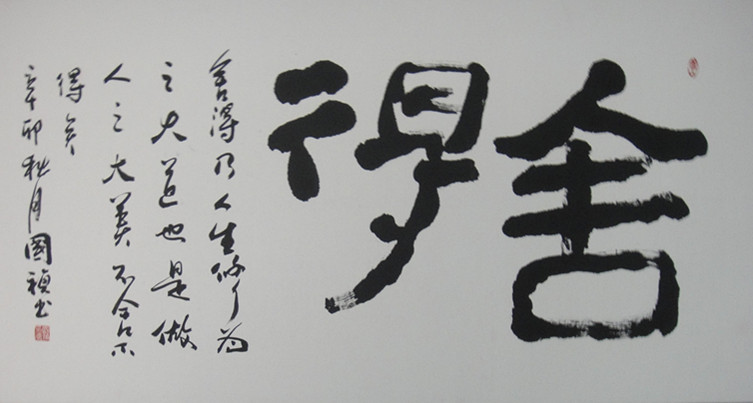 舍得
舍得乃人生修行为
之大道也是做
人之大美不舍不
得矣
辛卯秋月國禎书